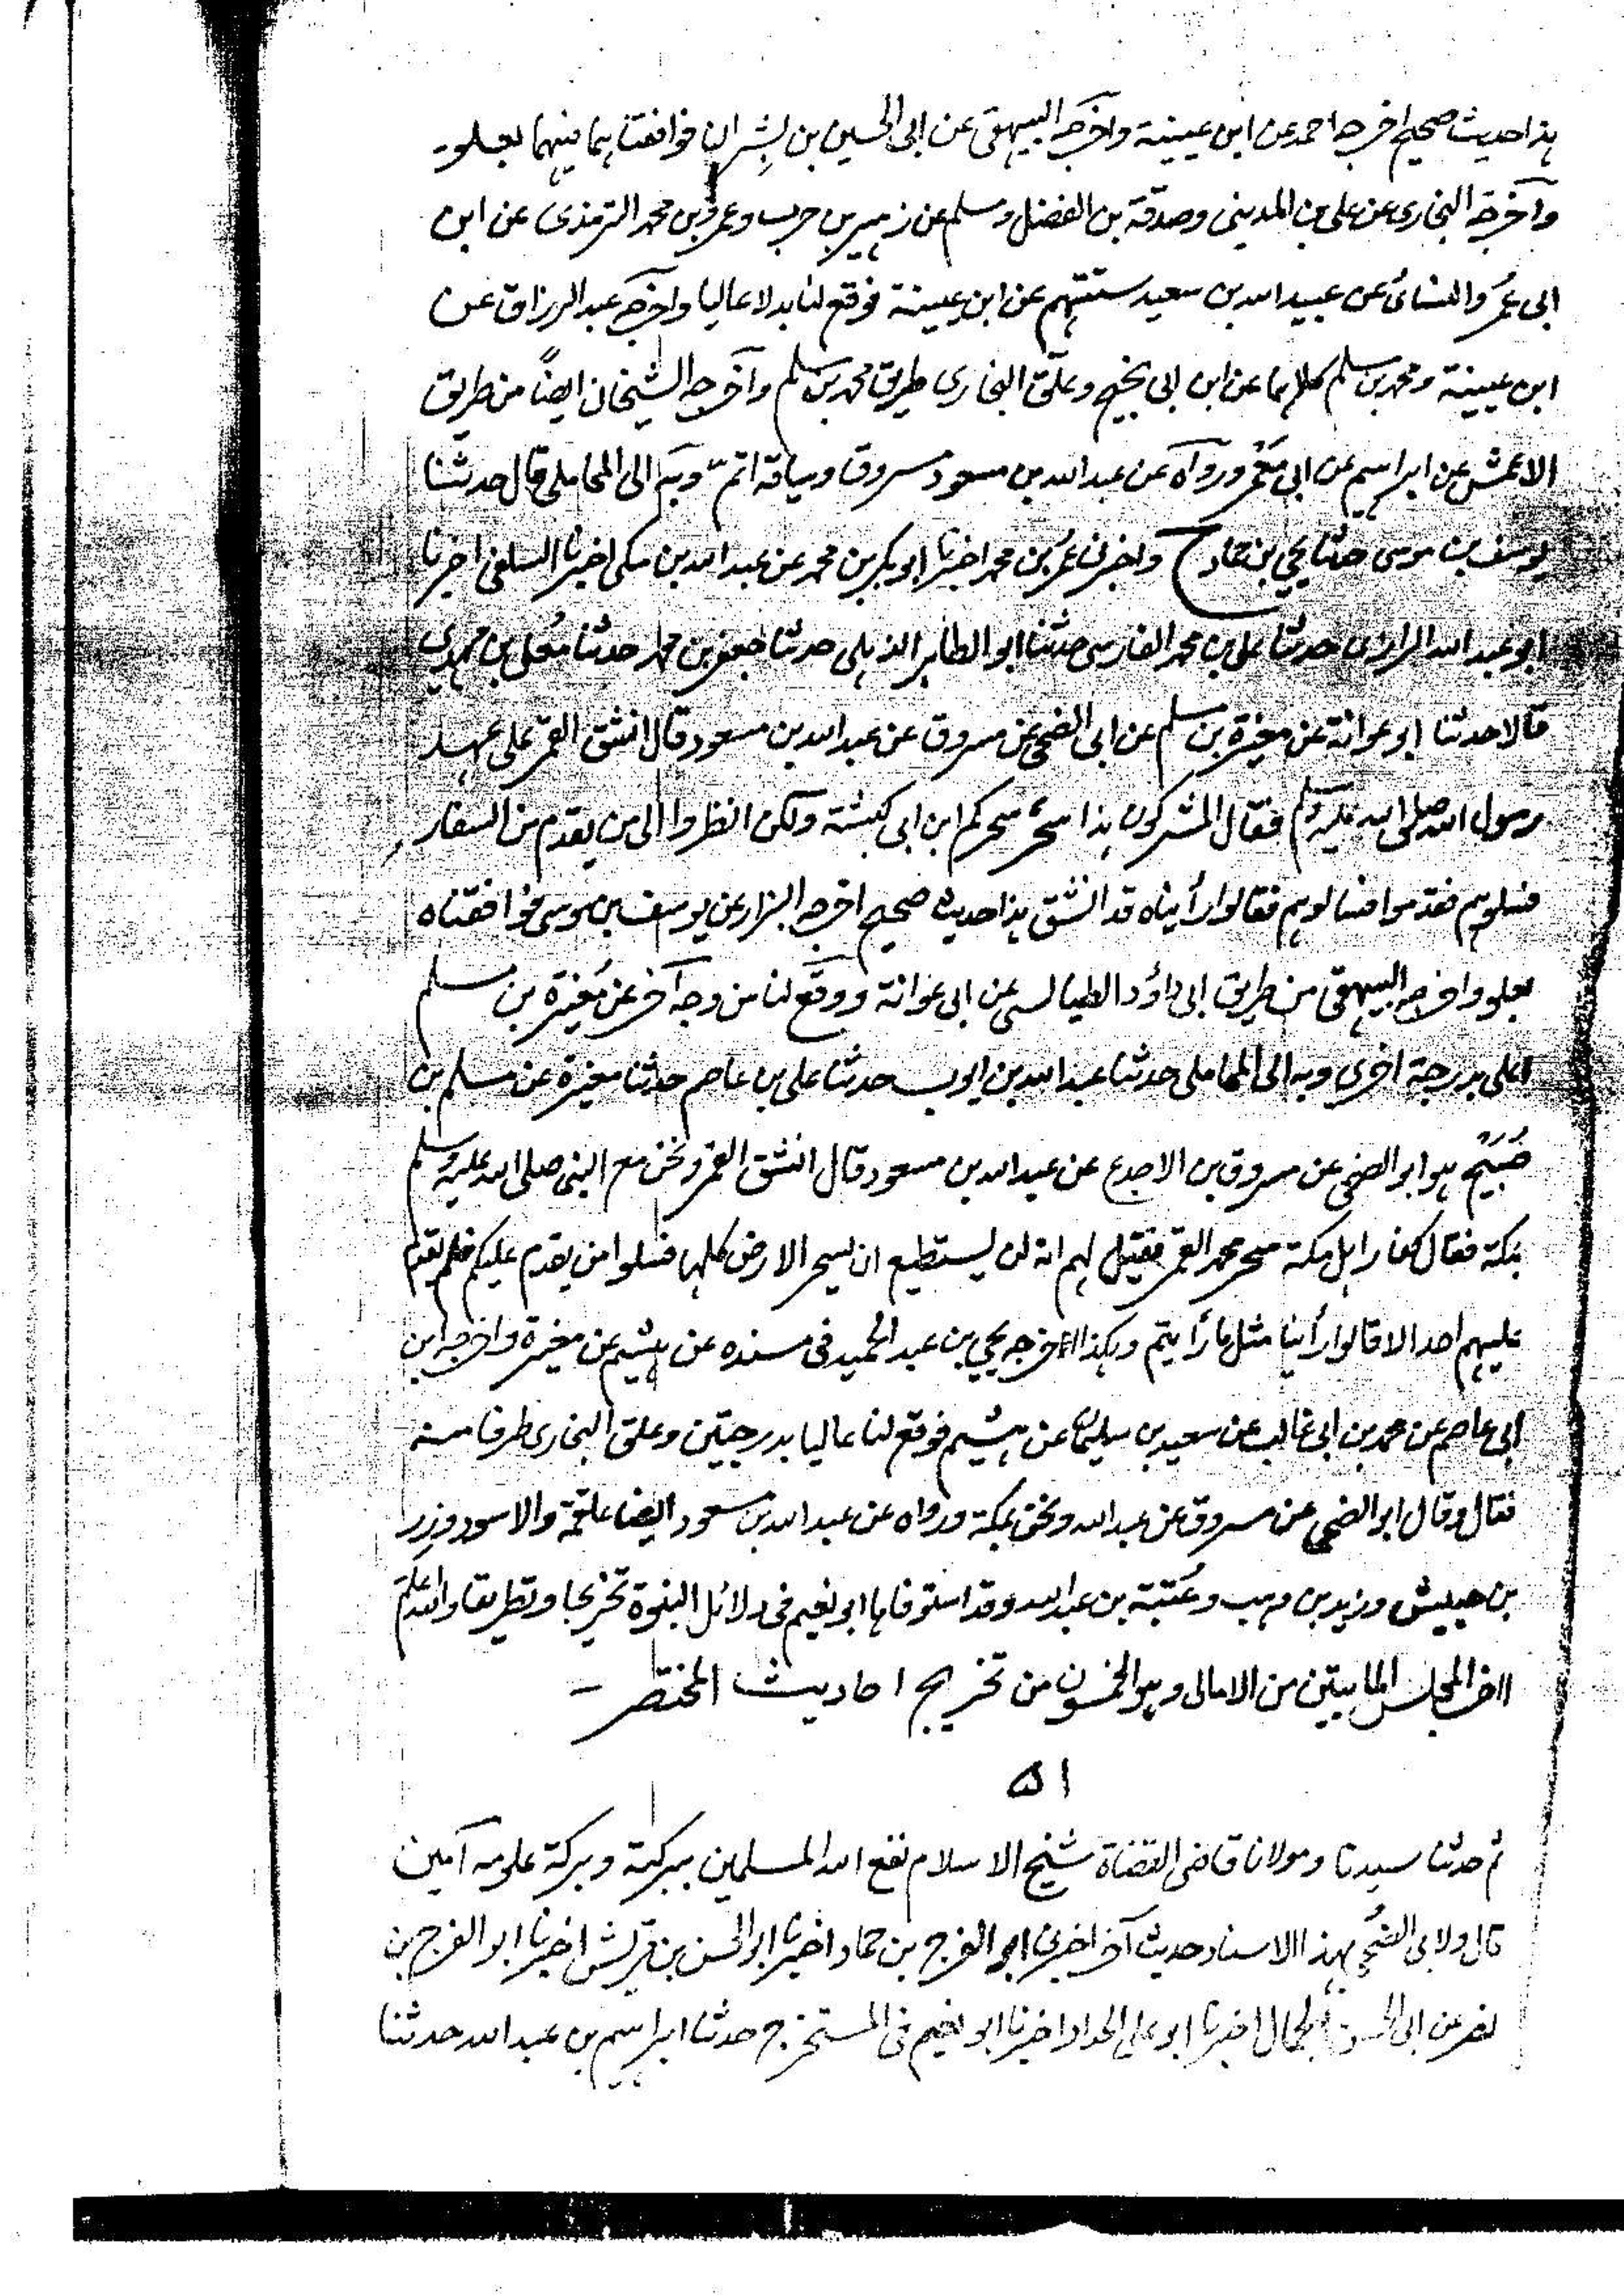 هذا حديث صحيح اخرجه احمد عن ابن عيينة واخرجه البيهقى عن ابى الحسين بن بشران فوافقناهما فيهما بعلو۔
وآخرجه البخارى عن على بن المدينى وصدقة بن الفضل ومسلم عن زهير بن حرب وعمرو بن محمد الترمذى عن ابن
ابى عمر والنسائى عن عبيد الله بن سعيد ستتهم عن ابن عيينة فوقع لنا بدلا عاليا واخرجه عبد الرزاق عن
ابن عيينة ومحمد بن مسلم كلاهما عن ابن ابى نجيح وعلّق البخارى طريق محمد بن مسلم وآخرجه الشيخان ايضاً من طريق
الاعمش عن ابراهيم عن ابى معمر ورواه عن عبد الله بن مسعود مسروق وسياقه اتم وبه الى المحاملى قال حدثنا
يوسف بن موسى حدثنا يحيي بن حماد ح واخبرنا عمر بن محمد اخبرنا ابو بكر بن محمد عن عبد الله بن مكى اخبرنا السلفى اخبرنا
ابو عبد الله الرازى حدثنا على بن محمد الفارسى حدثنا ابو الطاهر الذهلى حدثنا جعفر بن محمد حدثنا معلى بن مهدى
قالا حدثنا ابو عوانة عن مغيرة بن مسلم عن ابى الضحى عن مسروق عن عبد الله بن مسعود قال انشق القمر على عهد
رسول الله صلى الله عليه وسلم فقال المشركون هذا سحر سحركم ابن ابى كبشة ولكن انظروا الى من يقدم من السفار
فسلوهم فقدموا فسالوهم فقالوا رأيناه قد انشق هذا حديث صحيح اخرجه البزار عن يوسف بن موسى فوافقناه
بعلو واخرجه البيهقى من طريق ابى داؤد الطيالسى عن ابى عوانة ووقع لنا من وجه آخر عن مُغيرة بن مسلم
اعلى بدرجة اخرى وبه الى المحاملى حدثنا عبد الله بن ايوب حدثنا على بن عاصم حدثنا مغيرة عن مسلم بن
صُبَيْح هو ابو الضحى عن مسروق بن الاجدع عن عبد الله بن مسعود قال انشق القمر ونحن مع النبى صلى الله عليه وسلم
بمكة فقال كفار اهل مكة سحر محمد القمر فقيل لهم انه لن يستطيع ان يسحر الارض كلها فسلوا من يقدم عليكم فلم يقدم
عليهم احد الا قالوا رأينا مثل ما رأيتم وهكذا اخرجه يحيي بن عبد الحميد فى مسنده عن هشيم عن مغيرة واخرجه ابن
ابى عاصم عن محمد بن ابى غالب عن سعيد بن سليمان عن هشيم فوقع لنا عاليا بدرجتين وعلق البخارى طرفا منه
فقال وقال ابو الضحى عن مسروق عن عبد الله ونحن بمكة ورواه عن عبد الله بن مسعود ايضا علقمة والاسود وزِر
بن حبيش وزيد بن وهب وعُتبة بن عبد الله وقد استوفاها ابو نعيم فى دلائل النبوة تخريجا وتطريقا والله اعلم
اخر المجلس المايتين من الامالى وهو الخمسون من تخريج احاديث المختصر ۔
۵۱
ثم حدثنا سيدنا ومولانا قاضى القضاة شيخ الاسلام نفع الله المسلمين ببركته وبركة علومه آمين
قال ولابى الضحى بهذا الاسناد حديث آخر اخبرنى ابو الفرج بن حماد اخبرنا ابو الحسن بن قريش اخبرنا ابو الفرج بن
نصر عن ابى الحسن الجمال اخبرنا ابو على الحداد اخبرنا ابو نعيم فى المستخرج حدثنا ابراهيم بن عبد الله حدثنا